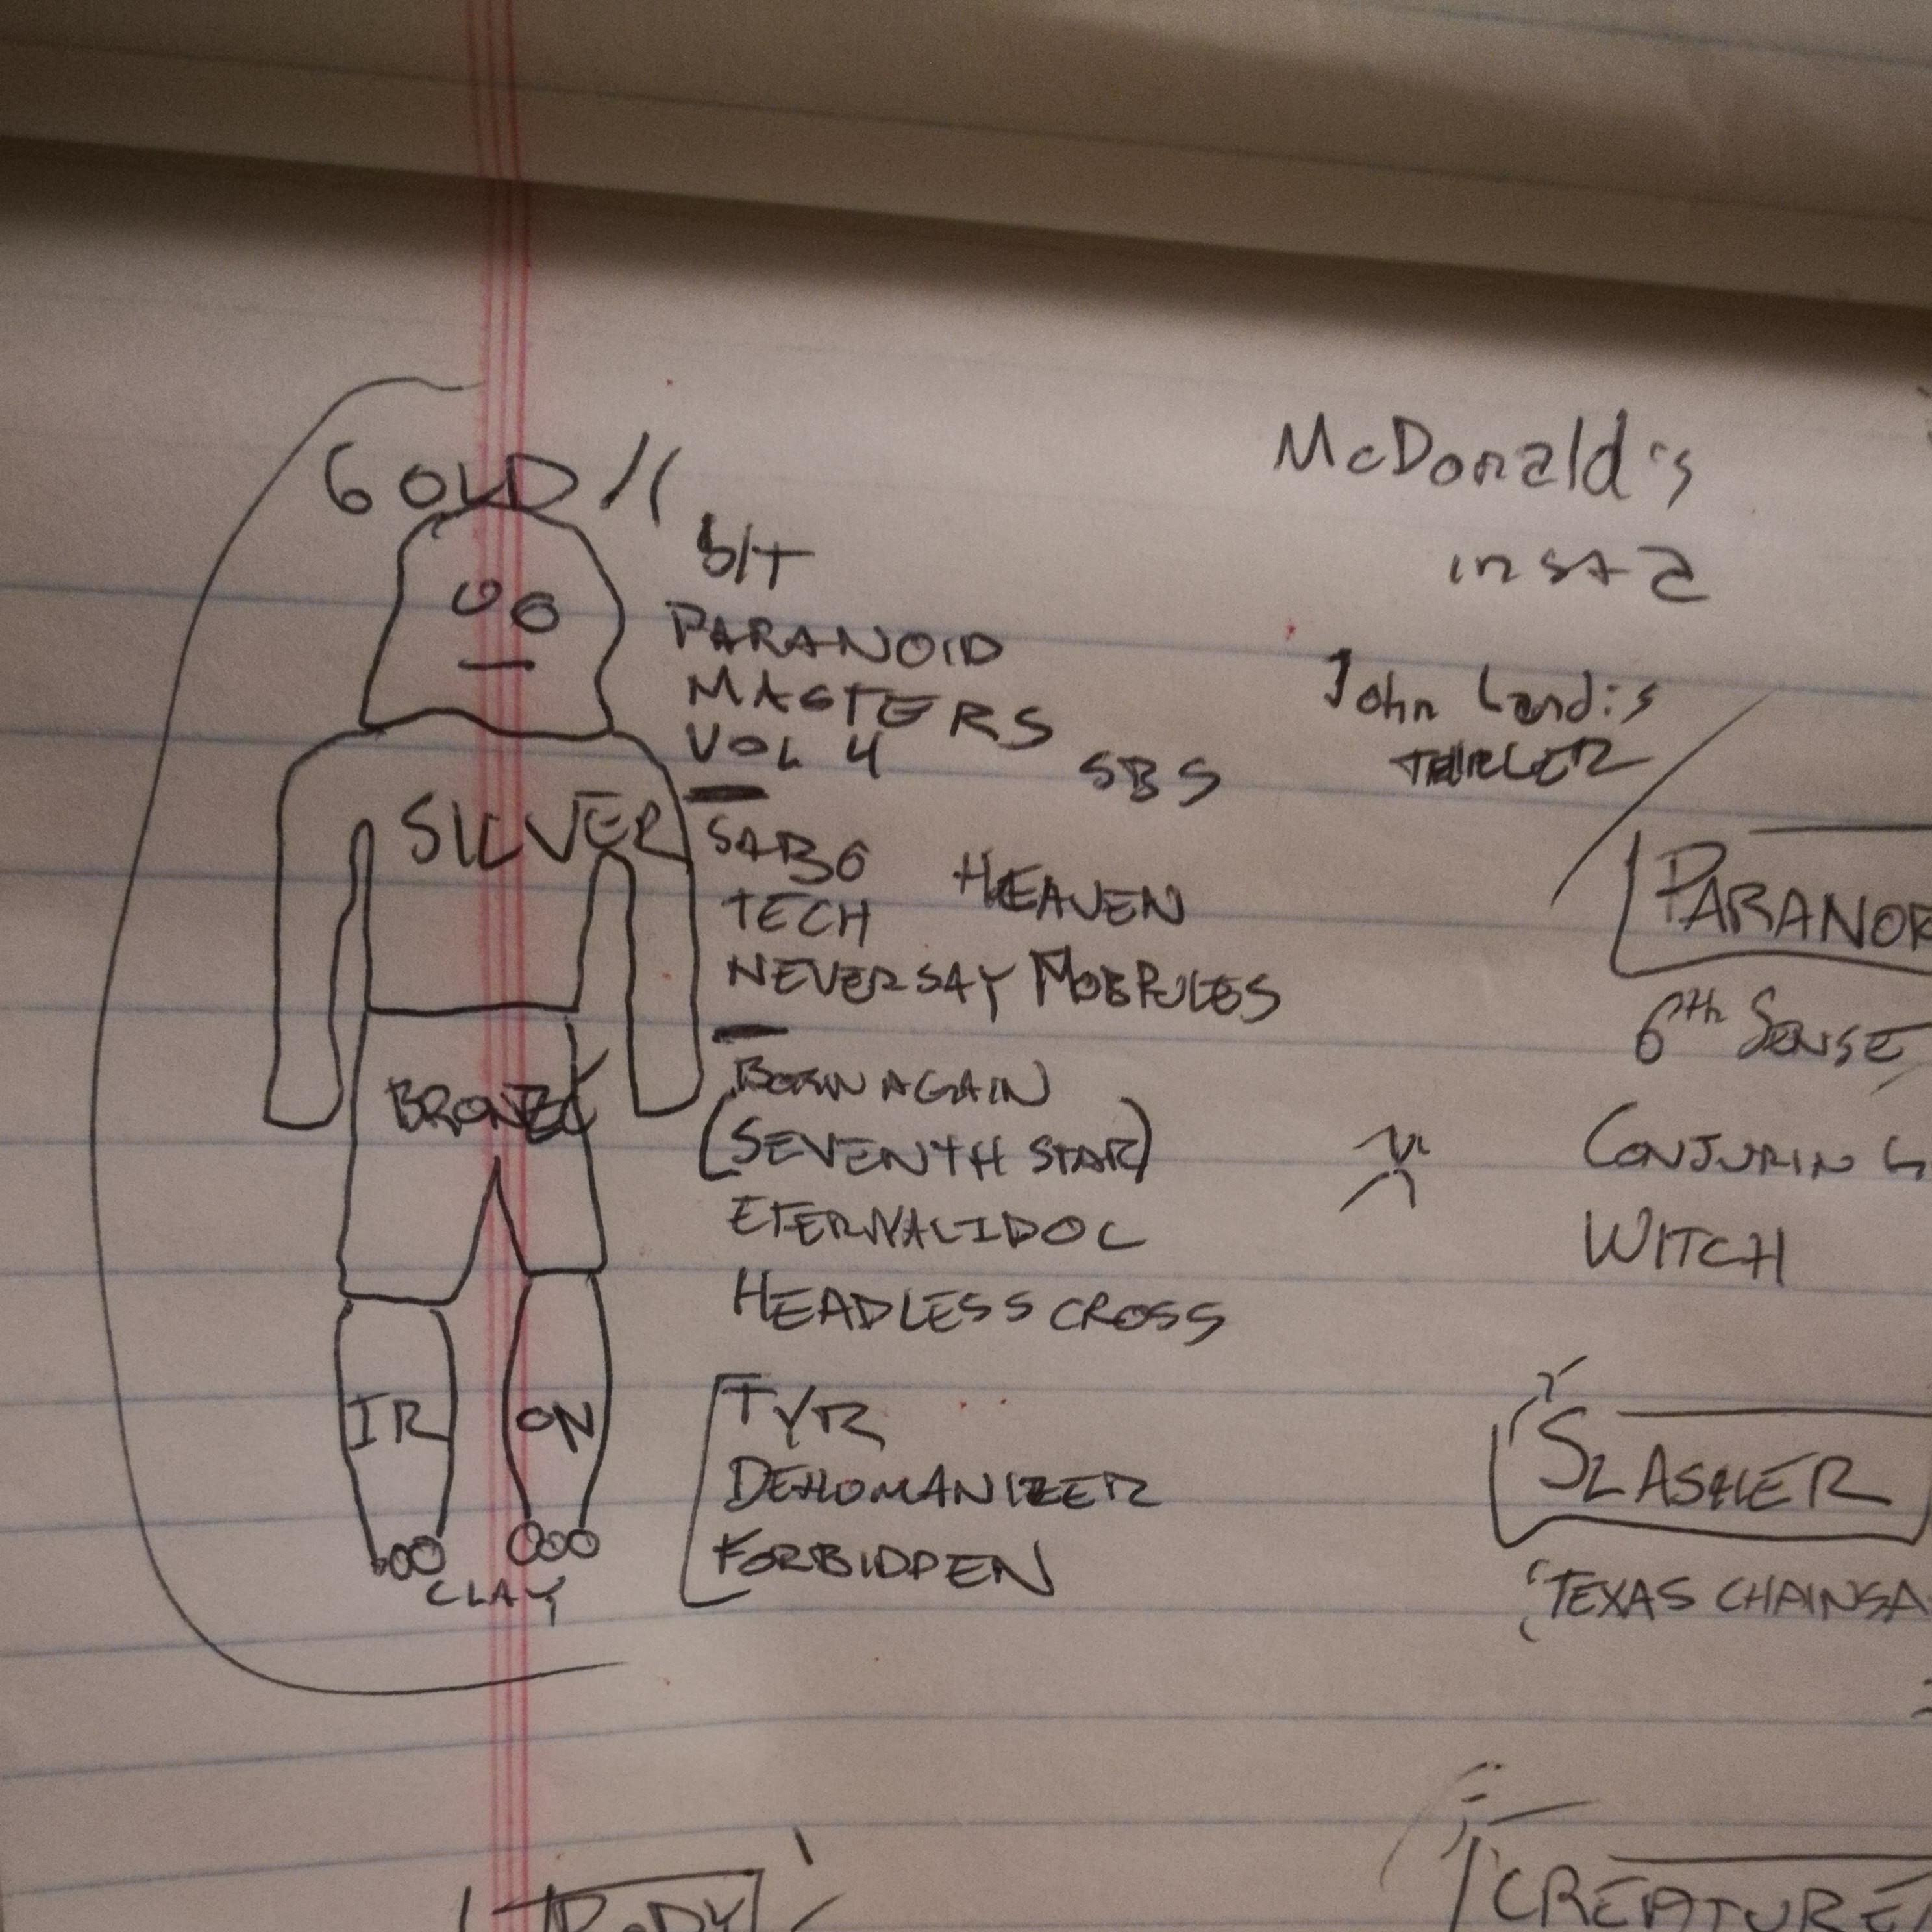 GOLD
S/T
PARANOID
MASTERS
VOL 4
SBS
SILVER
SABO
TECH
HEAVEN
NEVERSAY MOBRULES
BRONZE
BORN AGAIN
(SEVENTH STAR)
ETERNAL IDOL
HEADLESS CROSS
IR ON
TYR
DEHUMANIZER
FORBIDDEN
CLAY
McDonald's
insta
John Landis
THRILLER
PARANOR
6th SENSE
CONJURING
WITCH
SLASHER
TEXAS CHAINSA
BODY
CREATURE